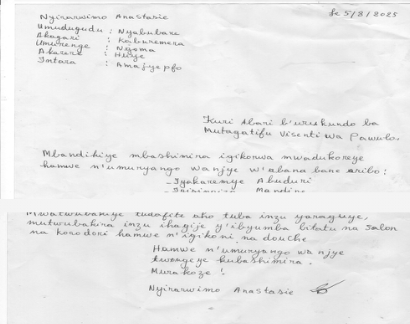 Nyirarwimo Anastasie
Le 5/8/2025
Umudugudu : Nyabubare
Akagari : Kaburemera
Umurenge : Ngoma
Akarere : Huye
Intara : Amajyepfo
Kuri Abari b'urukundo ba
Mutagatifu Visenti wa Pawulo.
Mbandikiye mbashimira igikorwa mwadukoreye
hamwe n'umuryango wanjye w'abana bane aribo:
- Iyakaremye Abuduri
Mwatwubakiye tudafite aho tuba inzu yaraguye,
mutwubakira inzu ihagije y'ibyumba bitatu na Salon
na korodori hamwe n'igikoni na douche
Hamwe n'umuryango wanjye
twongeye kubashimira.
Murakoze !
Nyirarwimo Anastasie